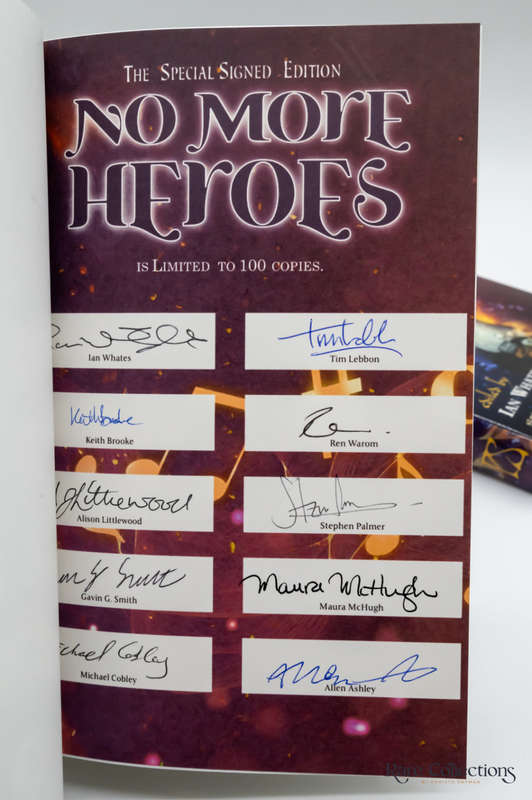 The Special Signed Edition
No More
Heroes
is Limited to 100 copies.
Ian Whates
Tim Lebbon
Keith Brooke
Keith Brooke
Ren Warom
Littlewood
Alison Littlewood
Stephen Palmer
Gavin G. Smith
Maura McHugh
Maura McHugh
Michael Cobley
Allen Ashley
Rare Collections